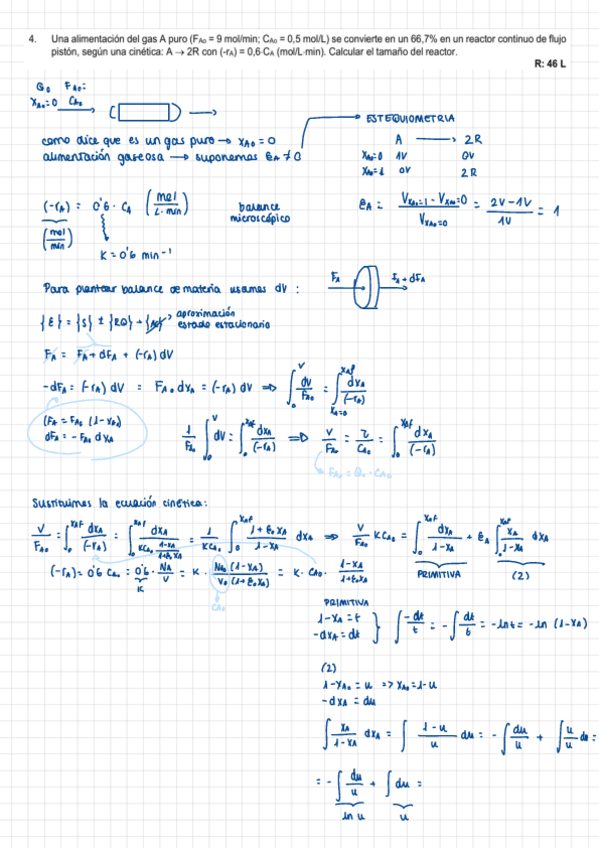 4. Una alimentación del gas A puro (FAo = 9 mol/min; CAo = 0,5 mol/L) se convierte en un 66,7% en un reactor continuo de flujo
pistón, según una cinética: A → 2R con (-rA) = 0,6·CA (mol/L·min). Calcular el tamaño del reactor.
R: 46 L
Q0 FA0:
XA0=0 CA0
como dice que es un gas puro → XA0 = 0
alimentación gaseosa → suponemos εA ≠ 0
ESTEQUIOMETRIA
A → 2R
XA=0 1V 0V
XA=1 0V 2R
(-rA) = 0'6 · CA (mol / L·min)
balance
microscópico
(mol/min)
K = 0'6 min⁻¹
εA = (VXA=1 - VXA=0) / VXA=0 = (2V - 1V) / 1V = 1
Para plantear balance de materia usamos dV:
FA FA + dFA
{E} = {S} ± {RQ} + {Ac}
aproximación
estado estacionario
FA = FA + dFA + (-rA) dV
-dFA = (-rA) dV = FA0 dXA = (-rA) dV ⇒ ∫₀^V dV/FA0 = ∫_{XA=0}^{XAf} dXA/(-rA)
(FA = FA0 (1-XA)
dFA = -FA0 dXA
1/FA0 ∫₀^V dV = ∫₀^{XAf} dXA/(-rA) ⇒ V/FA0 = τ/CA0 = ∫₀^{XAf} dXA/(-rA)
FA0 = Q0 · CA0
Sustituimos la ecuación cinética:
V/FA0 = ∫₀^{XAf} dXA/(-rA) = ∫₀^{XAf} dXA/(KCA0 (1-XA)/(1+εAXA)) = 1/KCA0 ∫₀^{XAf} (1+εAXA)/(1-XA) dXA ⇒ V/FA0 KCA0 = ∫₀^{XAf} dXA/(1-XA) + εA ∫₀^{XAf} XA/(1-XA) dXA
PRIMITIVA (2)
(-rA) = 0'6 CA = 0'6 · NA/V = K · NA0 (1-XA) / V0 (1+εAXA) = K · CA0 · (1-XA)/(1+εAXA)
K
CA0
PRIMITIVA
1-XA = t
-dXA = dt
} ∫ -dt/t = -∫ dt/t = -ln t = -ln (1-XA)
(2)
1-XA = u => XA = 1-u
-dXA = du
∫ XA/(1-XA) dXA = ∫ (1-u)/u du = -∫ du/u + ∫ u/u du =
= -∫ du/u + ∫ du =
ln u u